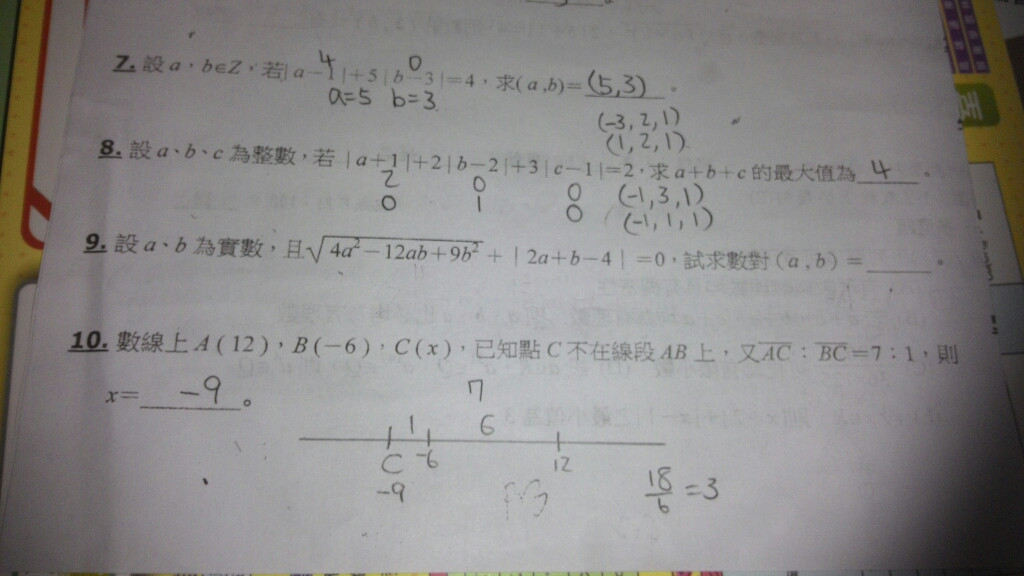 4 0
7. 設 a,b∈Z,若|a−1|+5|b−3|=4,求(a,b)= (5,3) 。
a=5 b=3
(-3,2,1)
(1,2,1)
8. 設 a、b、c 為整數,若 |a+1|+2|b−2|+3|c−1|=2,求 a+b+c 的最大值為 4 。
2 0 0 (-1,3,1)
0 1 0 (-1,1,1)
9. 設 a、b 為實數,且√4a²−12ab+9b² + | 2a+b−4 | =0,試求數對 (a,b) = ____ 。
10. 數線上 A(12),B(−6),C(x),已知點 C 不在線段 AB 上,又AC:BC=7:1,則
x= −9 。
7
1 6
C -6 12
-9
18/6 =3